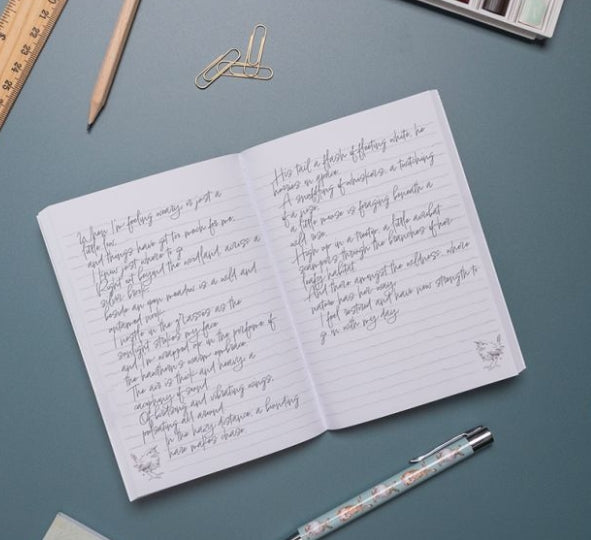 When I'm feeling weary, or just a
little low,
and things have got too much for me,
I know just where to go.
Right out beyond the woodland, across a
silver brook,
beside an open meadow is a wild and
untamed nook.
I nestle in the grasses as the
sunlight strokes my face
and I'm wrapped up in the perfume of
the hawthorn's warm embrace.
The air is thick and heavy, a
cacophony of sound
Of birdsong and vibrating wings,
pulsating all around.
In the hazy distance, a bounding
hare makes chase.
His tail a flash of fleeting white, he
bounces in grace.
A snuffling of whiskers, a twitching
of a nose
a little mouse is foraging beneath a
wild rose.
High up in a treetop a little acrobat
scampers through the branches of her
leafy habitat.
And there amongst the wildness, where
nature has her way
I feel restored and have new strength to
go on with my day.
20
21
22
23
24
25